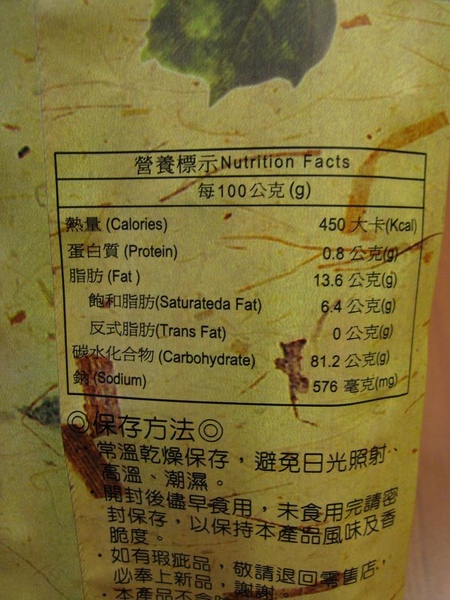 營養標示Nutrition Facts
每100公克(g)
熱量 (Calories) 450 大卡(Kcal)
蛋白質 (Protein) 0.8 公克(g)
脂肪 (Fat ) 13.6 公克(g)
飽和脂肪(Saturateda Fat) 6.4 公克(g)
反式脂肪(Trans Fat) 0 公克(g)
碳水化合物 (Carbohydrate) 81.2 公克(g)
鈉 (Sodium) 576 毫克(mg)
◎保存方法◎
常溫乾燥保存，避免日光照射、
高溫、潮濕。
開封後儘早食用，未食用完請密
封保存，以保持本產品風味及香
脆度。
・如有瑕疵品，敬請退回零售店，
必奉上新品，謝謝。
・本產品不含